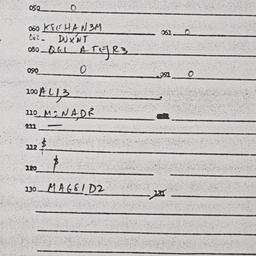 050 0
060 KEEHAN3M 061 0
DUXNT
080 QGI ATEJR3
090 0 091 0
100 ALI,3
110 M:NADR
111 —
112 $
120 $
130 MAGEID2 131